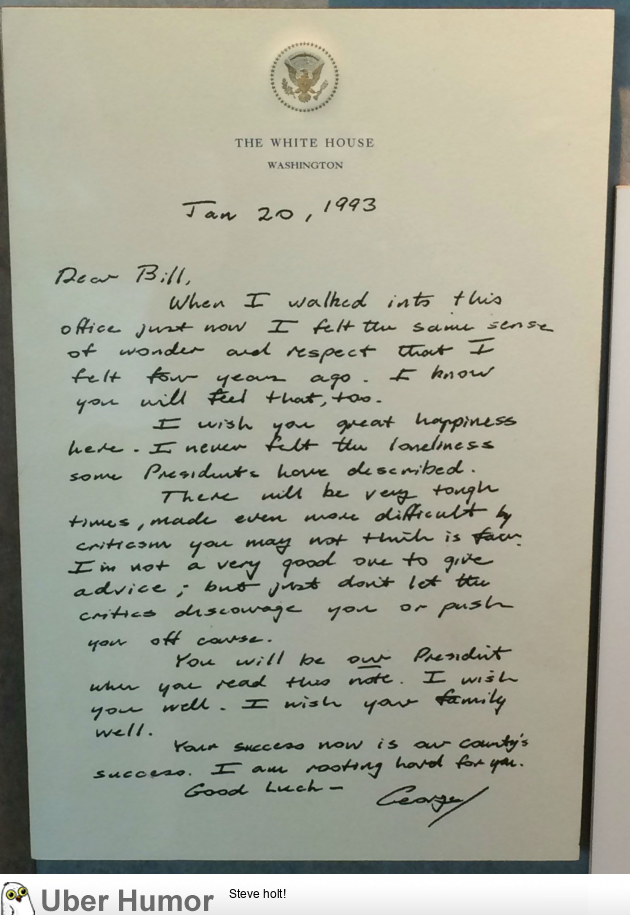 THE WHITE HOUSE
WASHINGTON
Jan 20, 1993
Dear Bill,
When I walked into this
office just now I felt the same sense
of wonder and respect that I
felt four years ago. I know
you will feel that, too.
I wish you great happiness
here. I never felt the loneliness
some Presidents have described.
There will be very tough
times, made even more difficult by
criticism you may not think is fair.
I'm not a very good one to give
advice; but just don't let the
critics discourage you or push
you off course.
You will be our President
when you read this note. I wish
you well. I wish your family
well.
Your success now is our country's
success. I am rooting hard for you.
Good Luck —
George
Uber Humor
Steve holt!